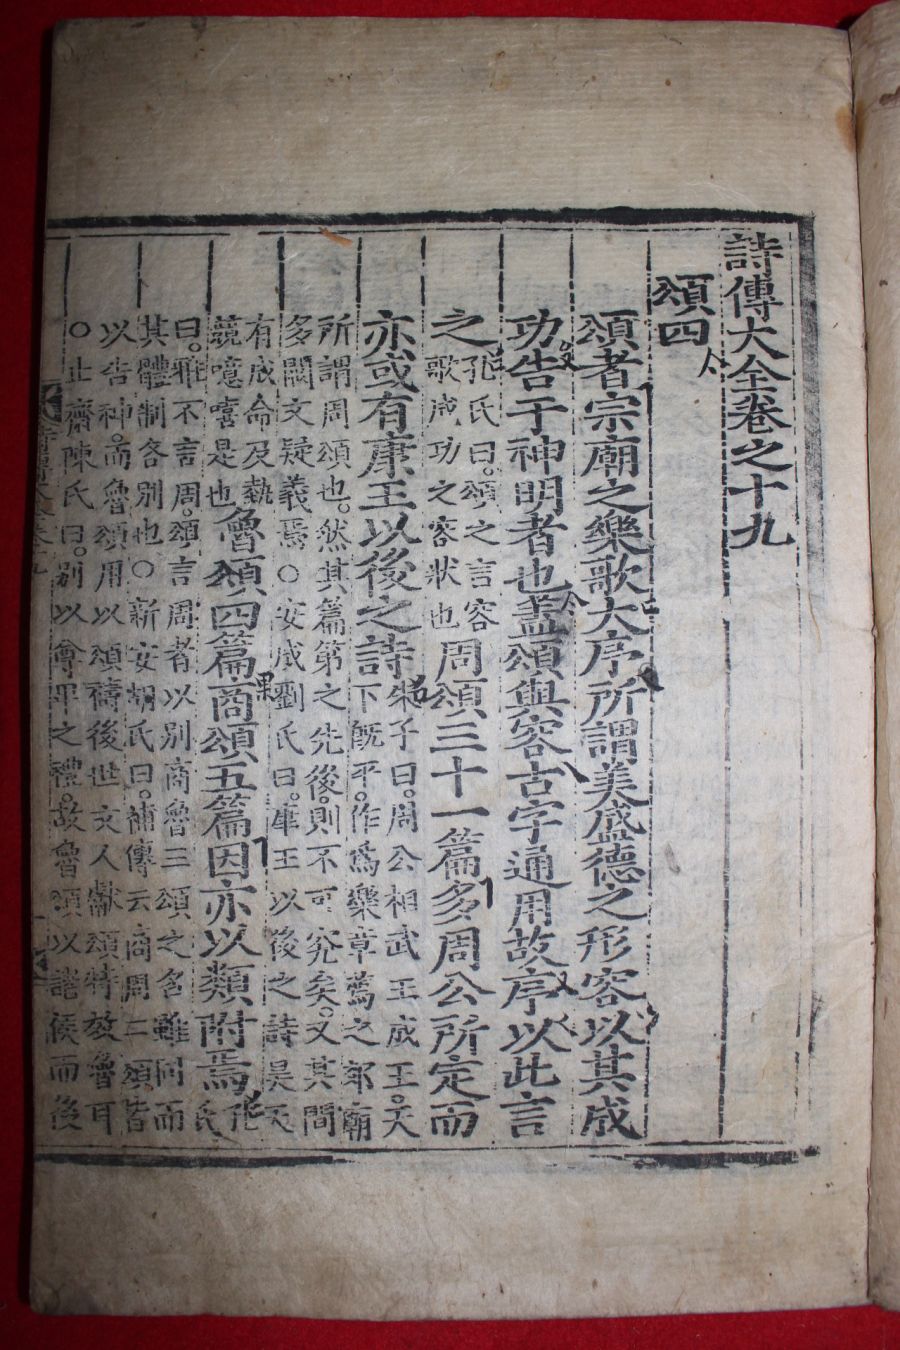 詩傳大全卷之十九
頌四
頌者宗廟之樂歌大序所謂美盛德之形容以其成
功告于神明者也盖頌與容古字通用故序以此言
之孔氏曰頌之言容
歌成功之容狀也
周頌三十一篇多周公所定而
亦或有康王以後之詩朱子曰周公相武王成王天
下旣平作爲樂章薦之郊廟
所謂周頌也然其篇第之先後則不可究矣又其間
多闕文疑義焉○安成劉氏曰康王以後之詩昊天
有成命及執
競噫嘻是也
魯頌四篇商頌五篇因亦以類附焉孔
氏
曰雅不言周頌言周者以別商魯三頌之名雖同而
其體制各別也○新安胡氏曰補傳云商周二頌皆
以告神而魯頌用以頌禱後世文人獻頌特效魯耳
○止齋陳氏曰別以尊卑之禮故魯頌以諸侯而後